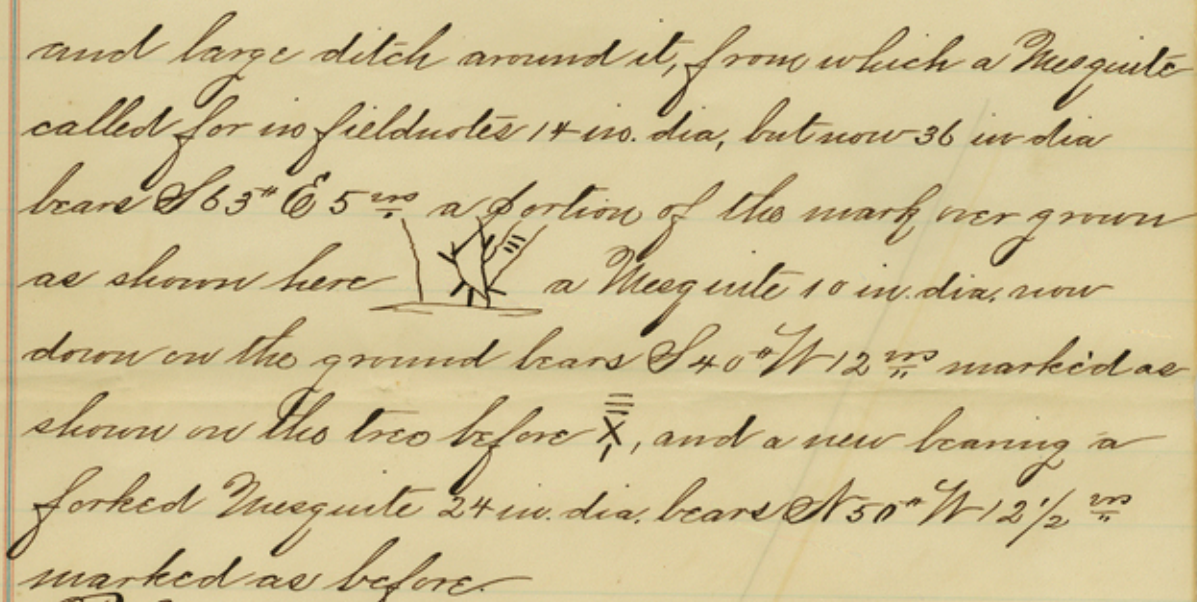 and large ditch around it, from which a Mesquite
called for in fieldnotes 14 in. dia, but now 36 in dia
bears S 63° E 5 vrs a portion of the mark over grown
as shown here a Mesquite 10 in. dia. now
down on the ground bears S 40° W 12 vrs marked as
shown on the tree before X, and a new bearing a
forked Mesquite 24 in. dia. bears N 50° W 12 1/2 vrs
marked as before.